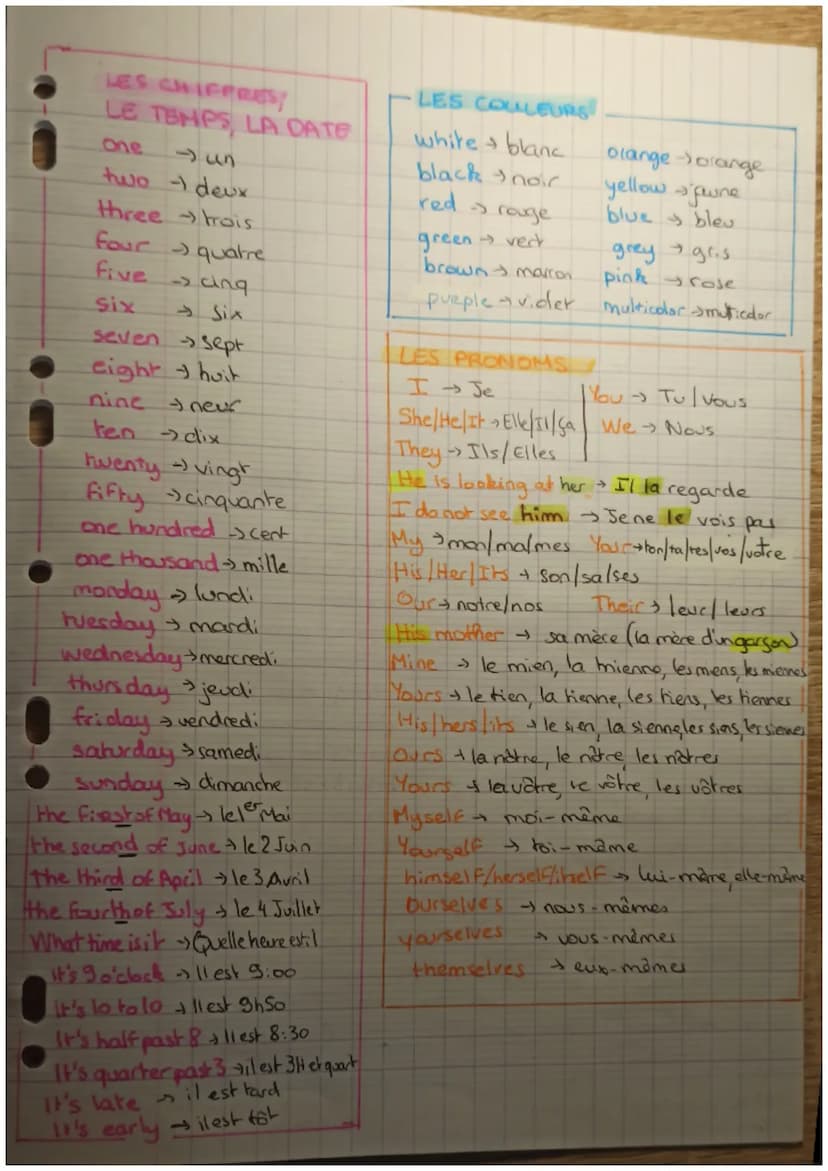 LES CHIFFRES,
LE TEMPS, LA DATE
one → un
two → deux
three → trois
four → quatre
five → cinq
six → six
seven → sept
eight → huit
nine → neuf
ten → dix
twenty → vingt
fifty → cinquante
one hundred → cent
one thousand → mille
monday → lundi
tuesday → mardi
wednesday → mercredi
thursday → jeudi
friday → vendredi
saturday → samedi
sunday → dimanche
the first of May → le 1er Mai
the second of June → le 2 Juin
the third of April → le 3 Avril
the fourth of July → le 4 Juillet
What time is it → Quelle heure est il
it's 9 o'clock → Il est 9:00
it's 10 to 10 → Il est 9h50
It's half past 8 → Il est 8:30
It's quarter past 3 → il est 3H et quart
It's late → il est tard
It's early → il est tôt
LES COULEURS
white → blanc orange → orange
black → noir yellow → jaune
red → rouge blue → bleu
green → vert grey → gris
brown → marron pink → rose
purple → violet multicolor → multicolor
LES PRONOMS
I → Je You → Tu/Vous
She/He/It → Elle/Il/ça We → Nous
They → Ils/Elles
He is looking at her → Il la regarde
I do not see him → Je ne le vois pas
My → mon/ma/mes Your → ton/ta/tes/vos/votre
His/Her/Its → son/sa/ses
Our → notre/nos Their → leur/leurs
His mother → sa mère (la mère d'un garçon)
Mine → le mien, la mienne, les miens, les miennes
Yours → le tien, la tienne, les tiens, les tiennes
His/hers/its → le sien, la sienne, les siens, les siennes
Ours → la nôtre, le nôtre, les nôtres
Yours → la vôtre, le vôtre, les vôtres
Myself → moi-même
Yourself → toi-même
himself/herself/itself → lui-même, elle-même
Ourselves → nous-mêmes
yourselves → vous-mêmes
themselves → eux-mêmes